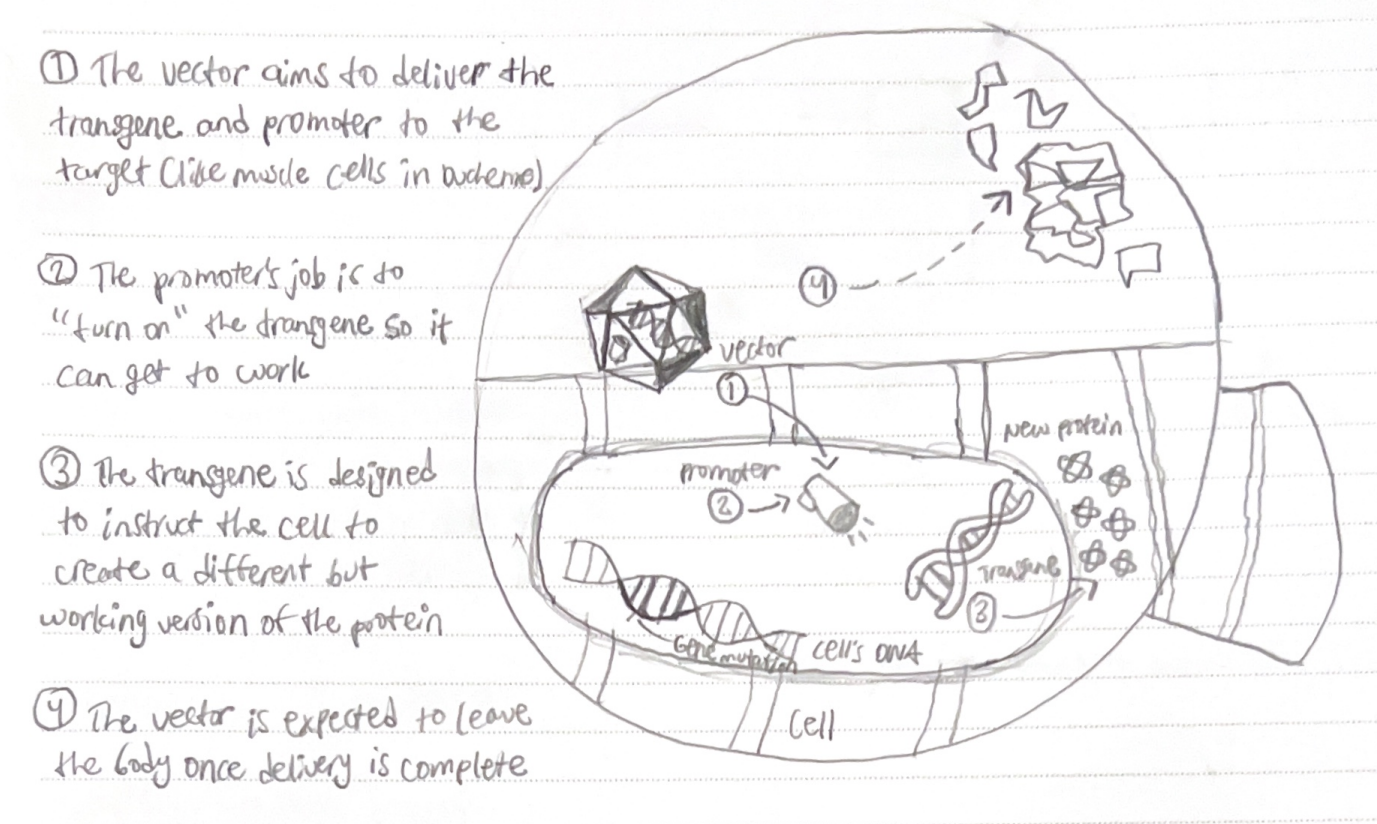 ① The vector aims to deliver the
transgene and promoter to the
target (like muscle cells in Duchenne)
② The promoter's job is to
"turn on" the transgene so it
can get to work
③ The transgene is designed
to instruct the cell to
create a different but
working version of the protein
④ The vector is expected to leave
the body once delivery is complete
④
vector
①
New protein
promoter
②
Transgene
③
Gene mutation
cell's DNA
Cell